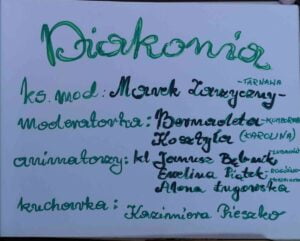 Diakonia
ks. mod: Marek Zarzyczny - TARNAWA
moderatorka: Bernadeta
Kosztyła (KAROLINA)
animatorzy: kl. Janusz
Ewelina Piątek -
Alona Ługowska
kuchowka: Kazimiera Pieszko